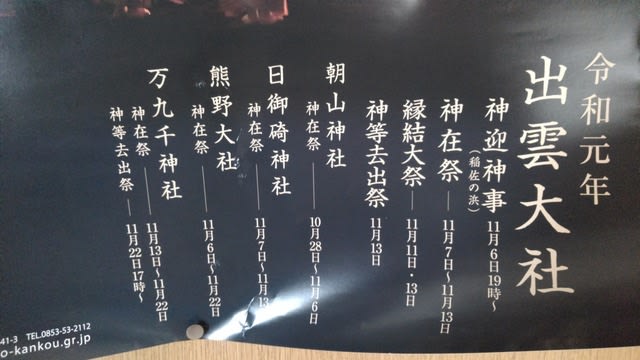 令和元年
出雲大社
神迎神事 11月6日19時～
(稲佐の浜)
神在祭 ― 11月7日～11月13日
縁結大祭 ― 11月11日・13日
神等去出祭 11月13日
朝山神社
神在祭 ― 10月28日～11月6日
日御碕神社
神在祭 ― 11月7日～11月13
熊野大社
神在祭 ― 11月6日～11月22日
万九千神社
神在祭 ― 11月13日～11月22日
神等去出祭 ― 11月22日17時～
41-3 TEL.0853-53-2112
o-kankou.gr.jp